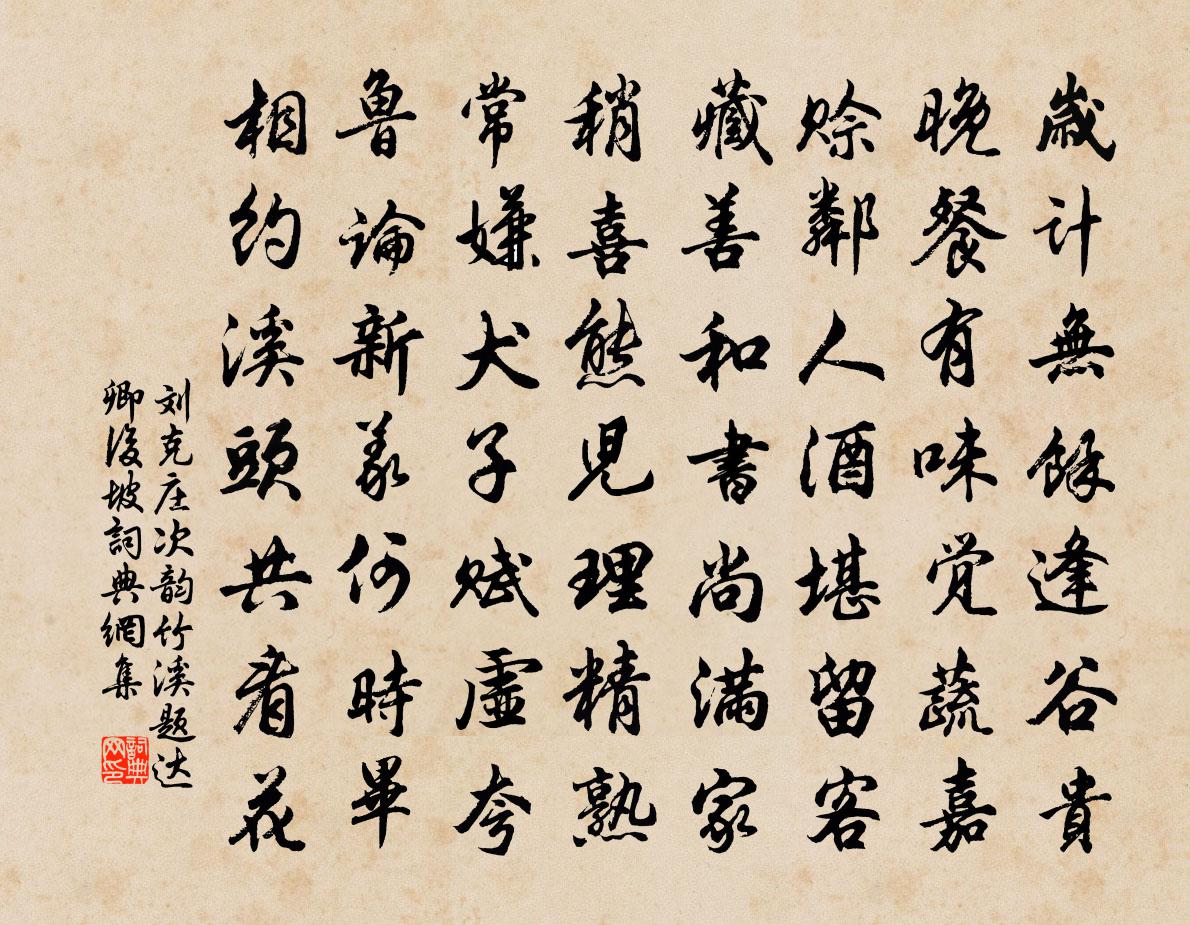 歳计無餘逢谷貴
晚餐有味觉蔬嘉
赊鄰人酒堪留客
藏善和書尚满家
稍喜熊児理精熟
常嫌犬子赋虛夸
魯论新義何時畢
相约溪頭共看花
刘克庄次韵竹溪题达
卿後坡詞典網集
詞典网印